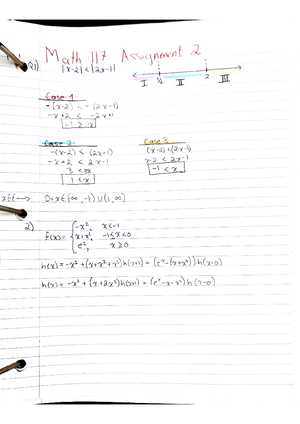 Math 117 Assignment 2
Q1) |x-2| < |2x-1|
I 1/2 II 2 III
Case 1
-(x-2) < -(2x-1)
-x+2 < -2x+1
-1 > x
Case 2
-(x-2) < (2x-1)
-x+2 < 2x-1
3 < 3x
1 < x
Case 3
(x-2) < (2x-1)
x-2 < 2x-1
-1 < x
(∞, -1) U (1, ∞)
2)
f(x) = { -x², x<-1
x+x², -1≤x<0
eˣ, x≥0
h(x) = -x² + (x+x²+x²)h(x+1) + (eˣ-(x+x²))h(x-0)
h(x) = -x² + (x+2x²)h(x+1) + (eˣ-x-x²)h(x-0)